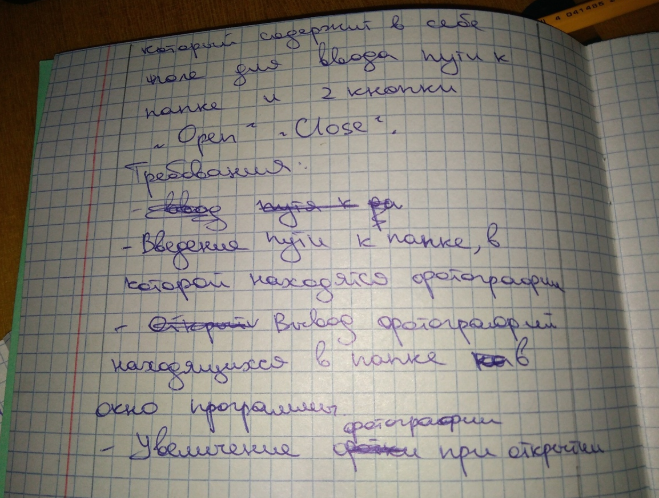 который содержит в себе
поле для ввода пути к
папке и 2 кнопки
„Open“ „Close“.
Требования:
- ввод пути к
- Введения пути к папке, в
которой находятся фотографии
- Открыти Вывод фотографий
находящихся в папке на в
окно программы
фотографии
- Увеличение фотки при открытии
4 041406